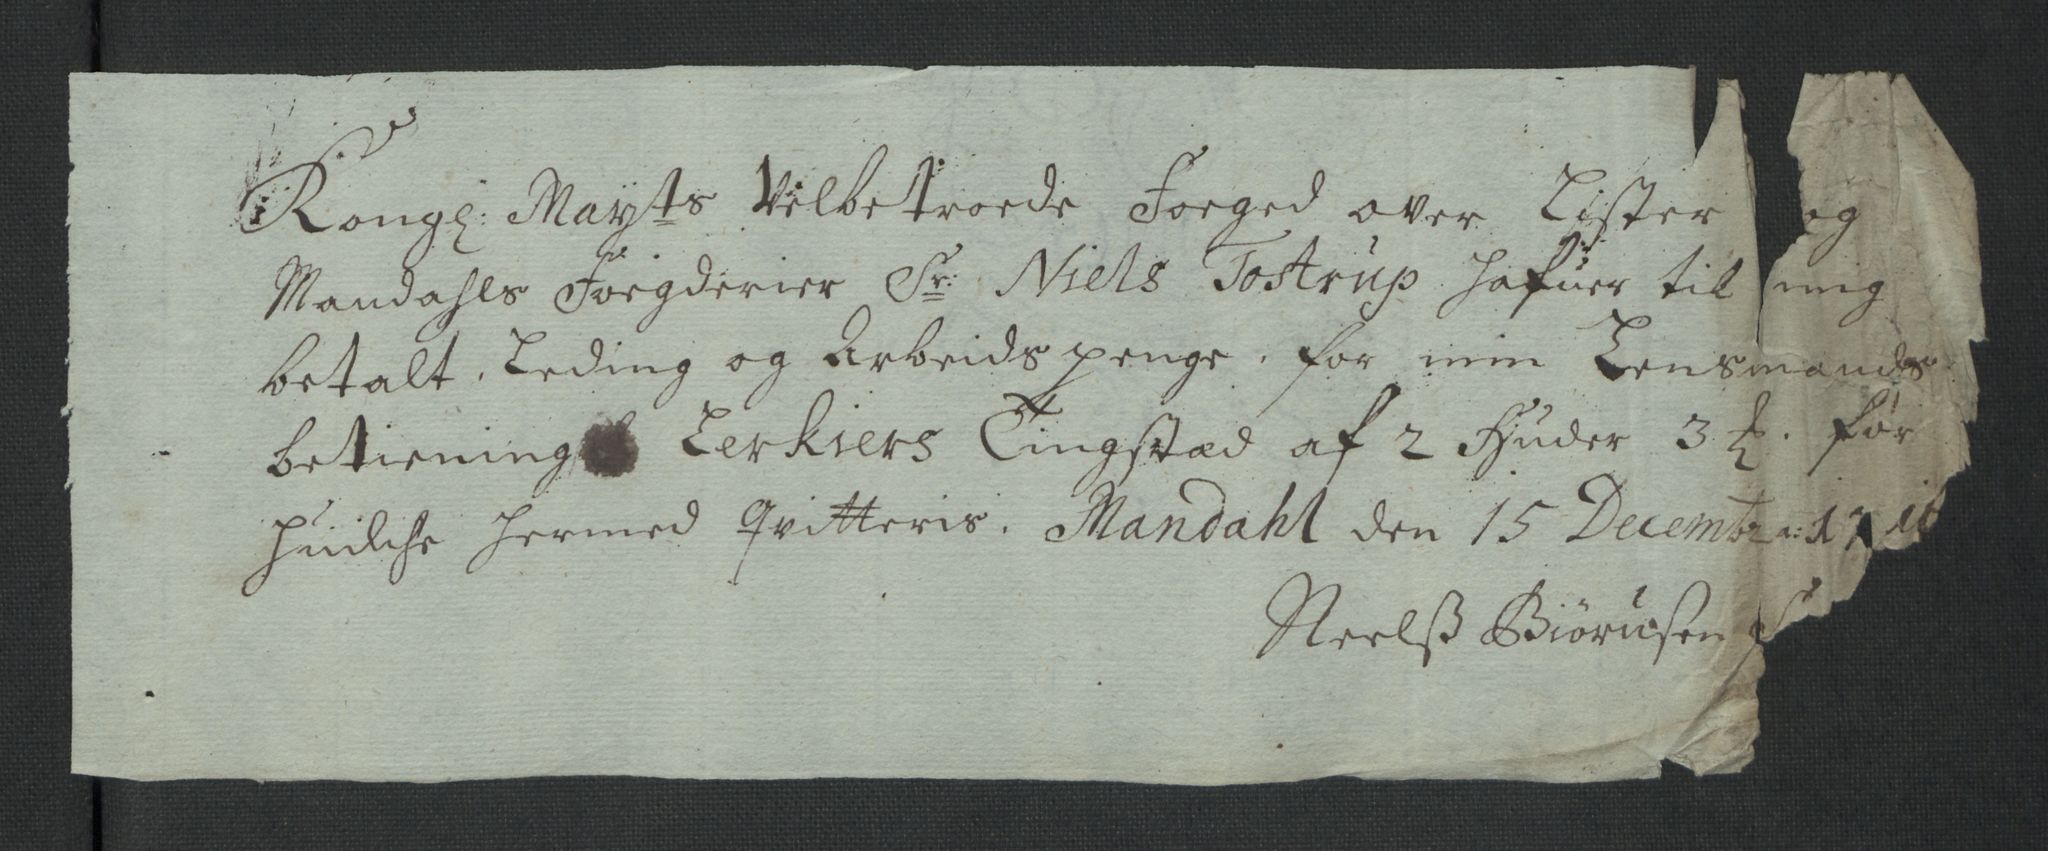 Kongl: Mayts Velbetroede Foeged over Lister og
Mandahls Foegderier Sr: Niels Tostrup hafuer til mig
betalt, Leding og Arbeids penge, for min Lensmands
betiening Lerkiers Tingstæd af 2 Hjuder 3 for
hvilche hermed Qvitteris. Mandahl den 15 Decembr a: 17
Neelsß Biörnsen